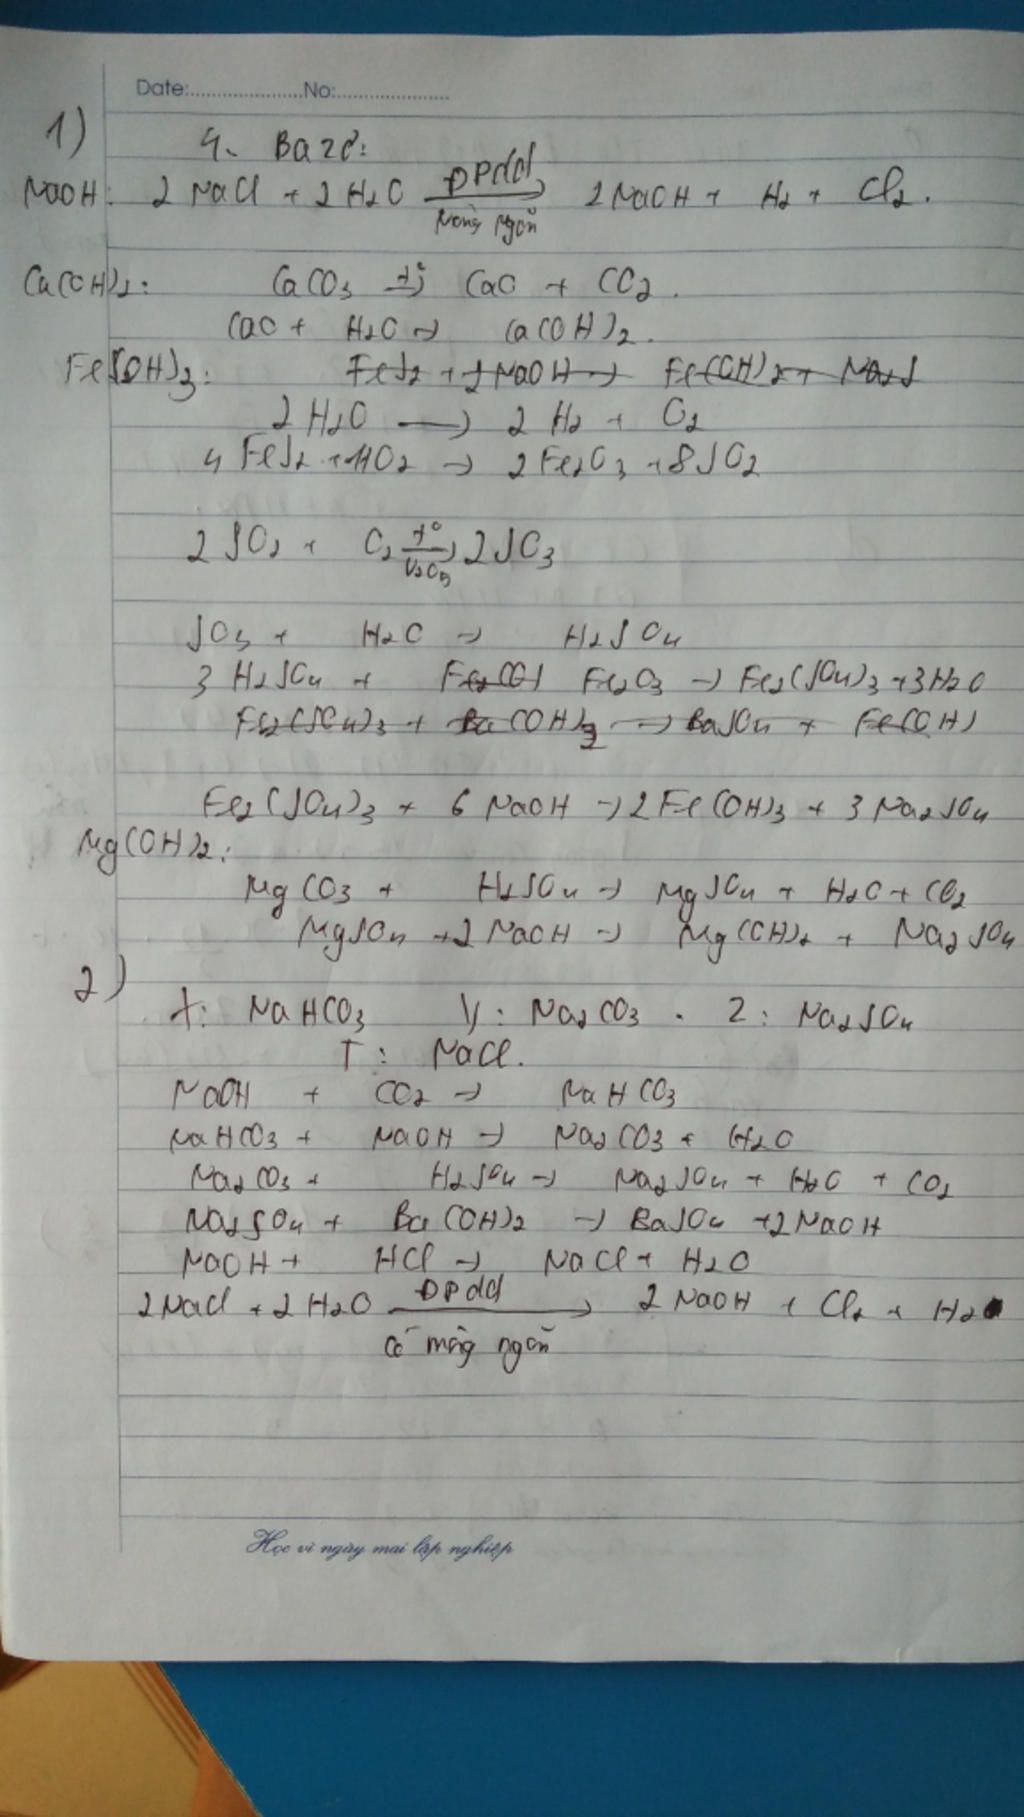 Date:......................No:.....................
1)
4. Bazơ:
NaOH: 2 NaCl + 2 H₂O ĐPdd → màng ngăn 2 NaOH + H₂ + Cl₂.
Ca(OH)₂: CaCO₃ t° → CaO + CO₂.
CaO + H₂O → Ca(OH)₂.
Fe(OH)₃: FeS₂ + 2 NaOH → Fe(OH)₂ + Na₂S
2 H₂O → 2 H₂ + O₂
4 FeS₂ + 11O₂ → 2 Fe₂O₃ + 8 SO₂
2 SO₂ + O₂ t° → V₂O₅ 2 SO₃
SO₃ + H₂O → H₂SO₄
3 H₂SO₄ + Fe₂O₃ → Fe₂(SO₄)₃ + 3H₂O
Fe₂(SO₄)₃ + Ba(OH)₂ → BaSO₄ + Fe(OH)
Fe₂(SO₄)₃ + 6 NaOH → 2 Fe(OH)₃ + 3 Na₂SO₄
Mg(OH)₂:
MgCO₃ + H₂SO₄ → MgSO₄ + H₂O + CO₂
MgSO₄ + 2 NaOH → Mg(OH)₂ + Na₂SO₄
2)
X: NaHCO₃ Y: Na₂CO₃ . Z: Na₂SO₄
T: NaCl.
NaOH + CO₂ → NaHCO₃
NaHCO₃ + NaOH → Na₂CO₃ + H₂O
Na₂CO₃ + H₂SO₄ → Na₂SO₄ + H₂O + CO₂
Na₂SO₄ + Ba(OH)₂ → BaSO₄ + 2 NaOH
NaOH + HCl → NaCl + H₂O
2NaCl + 2 H₂O ĐPdd → có màng ngăn 2 NaOH + Cl₂ + H₂
Học vì ngày mai lập nghiệp